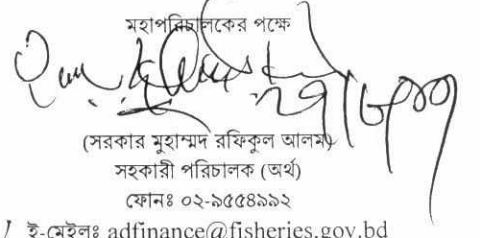 মহাপরিচালকের পক্ষে
(সরকার মুহাম্মদ রফিকুল আলম)
সহকারী পরিচালক (অর্থ)
ফোনঃ ০২-৯৫৫৪৯৯২
ই-মেইলঃ adfinance@fisheries.gov.bd